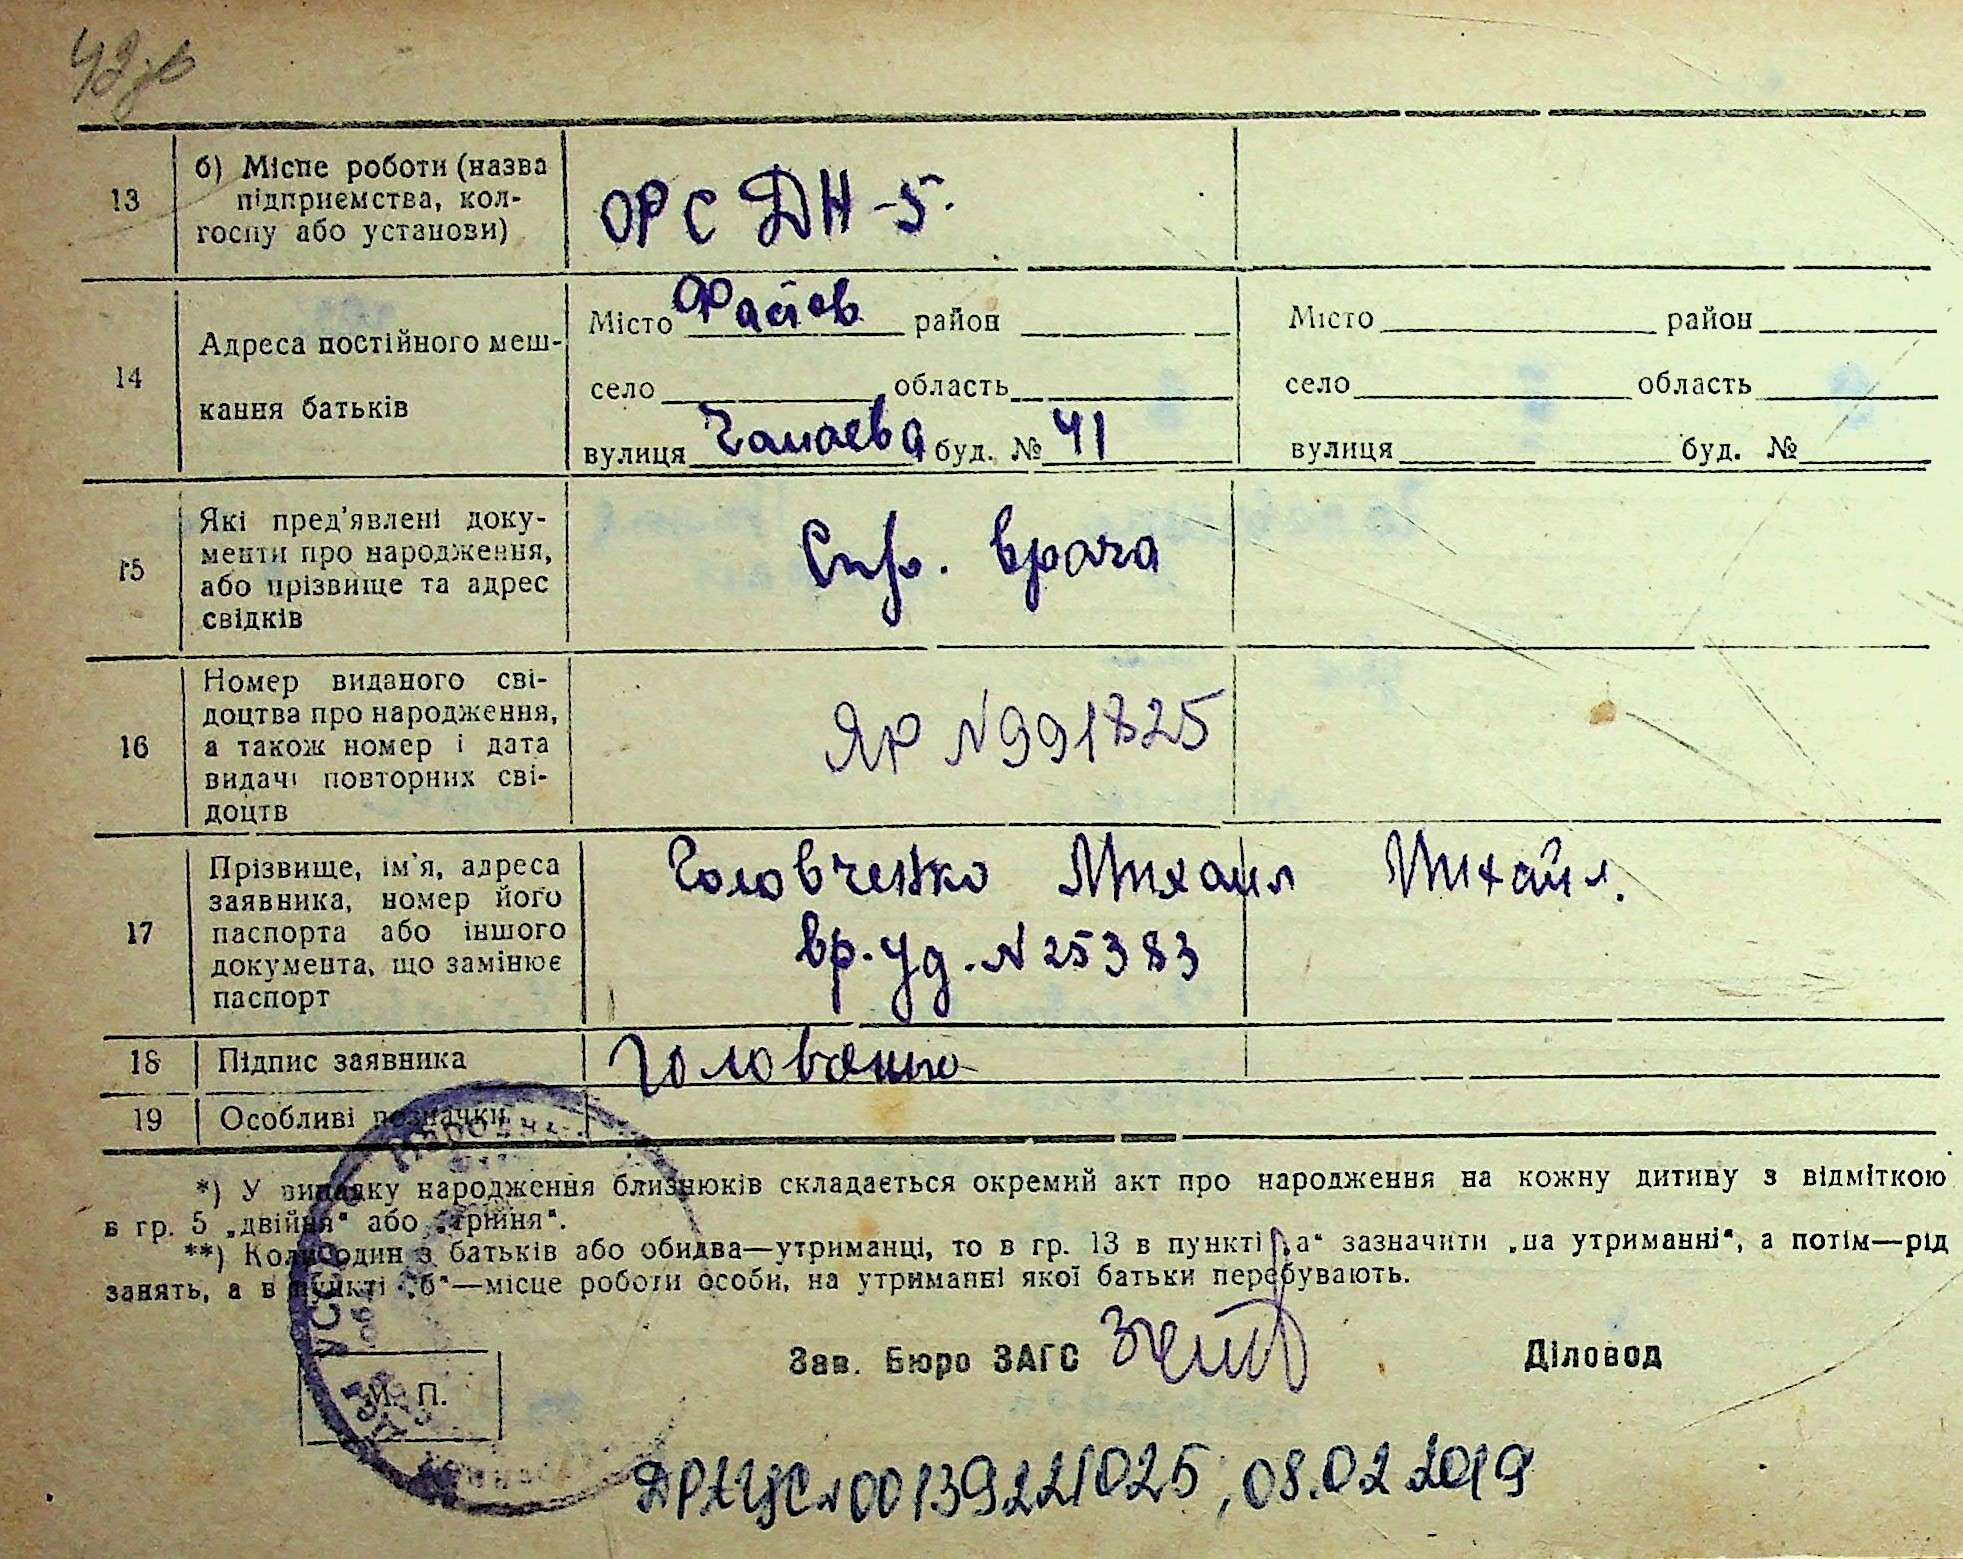 42 зв
13
б) Місце роботи (назва
підприємства, кол-
госпу або установи)
ОРС ДН-5.
14
Адреса постійного меш-
кання батьків
Місто Фастов район
село область
вулиця Чапаева буд. № 41
Місто район
село область
вулиця буд. №
15
Які пред'явлені доку-
менти про народження,
або прізвище та адрес
свідків
Спр. врача
16
Номер виданого сві-
доцтва про народження,
а також номер і дата
видачі повторних сві-
доцтв
ЯР №991825
17
Прізвище, ім'я, адреса
заявника, номер його
паспорта або іншого
документа, що замінює
паспорт
Головченко Михаил Михайл.
вр. уд. №25383
18
Підпис заявника
Головченко
19
Особливі позначки
*) У випадку народження близнюків складається окремий акт про народження на кожну дитину з відміткою
в гр. 5 „двійня“ або „трійня“.
**) Коли один з батьків або обидва—утриманці, то в гр. 13 в пункті „а“ зазначити „на утриманні“, а потім—рід
занять, а в пункті „б“—місце роботи особи, на утриманні якої батьки перебувають.
Зав. Бюро ЗАГС
Діловод
М. П.
УССР
ДРАЦС №00139221025, 08.02.2019